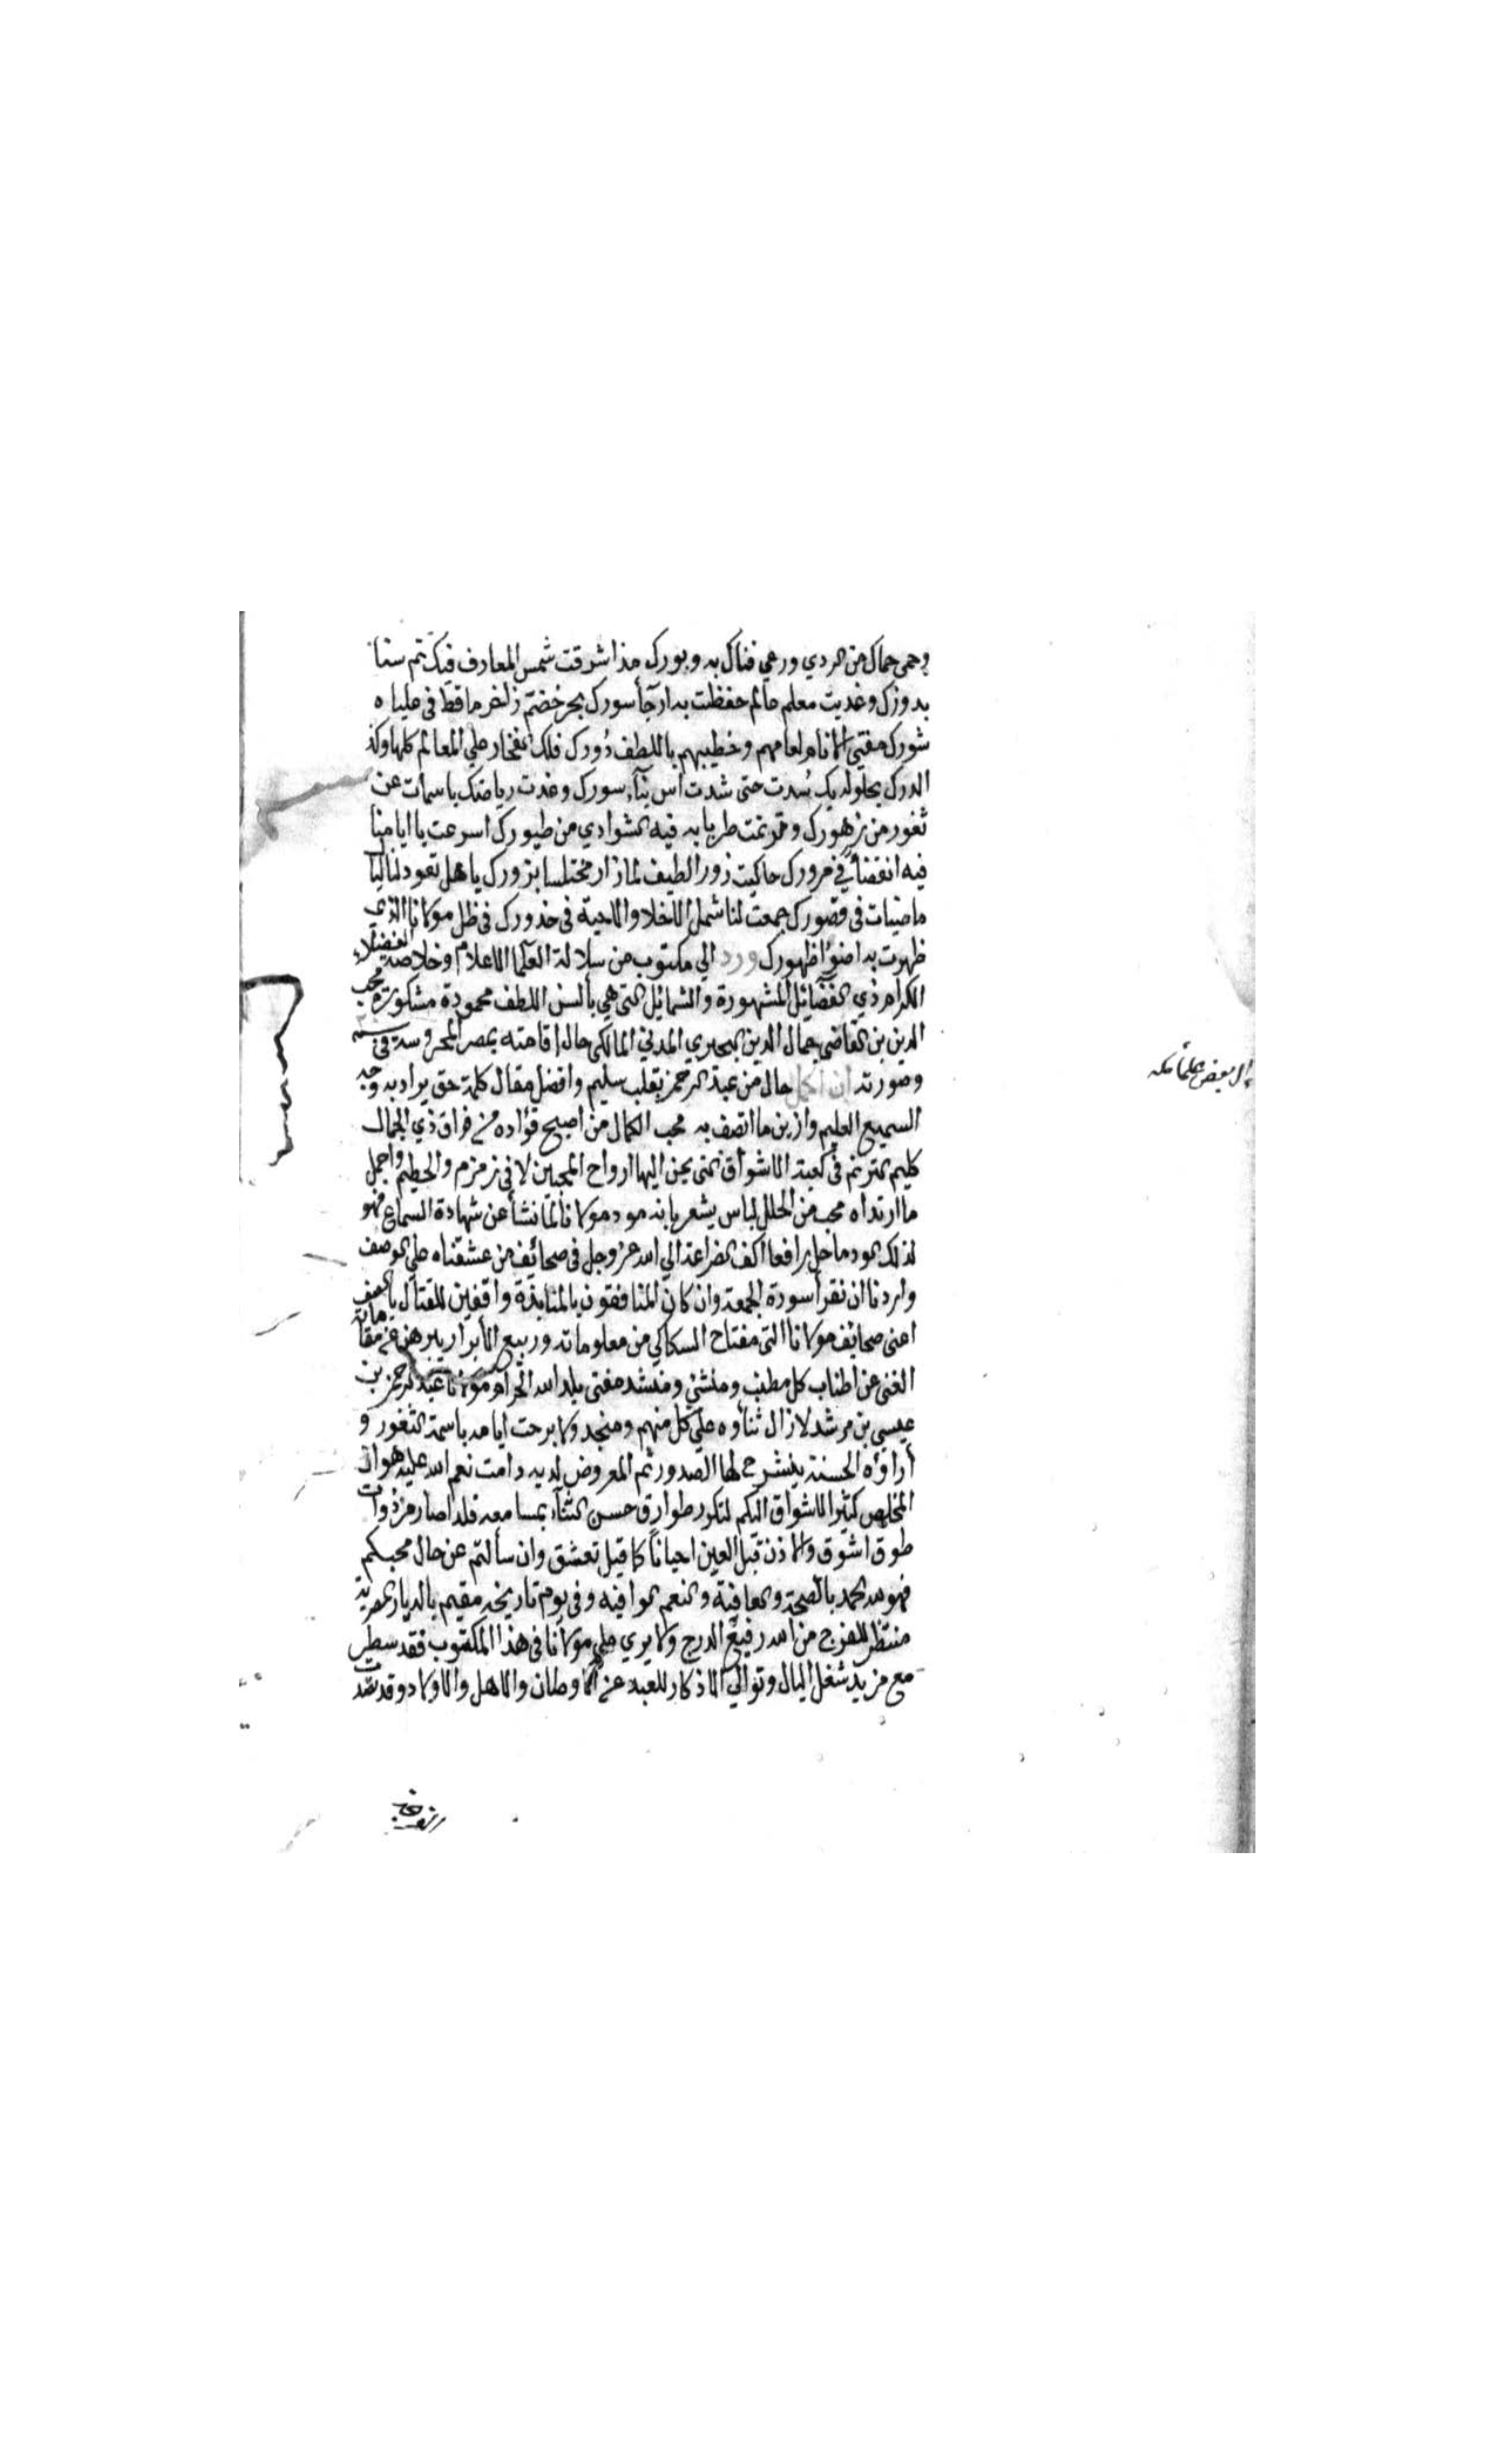 وحمى حماك من الردي ورعي فناك به وبورك مذ اشرقت شمس المعارف فيك تم سنا
بدورك وغديت معلم عالم حفظت به ارجآ سورك بحر خضم زاخر ما قط في علياه
شورك مفتي الانام لعامهم وخطيبهم باللطف دورك فلك الفخار علي المعالم كلها وكذ
الدرك بحلوله بك سدت حتى شدت اس بنآء سورك وغدت رياضك باسمات عن
ثغور من زهورك وترنمت طربا به فيه الشوادي من طيورك اسرعت يا ايامنا
فيه انقضآء في مرورك حاكيت زور الطيف لما زار مختلسا بزورك يا هل تعود لنا ليا
ماضيات في قصورك جمعت لنا شمل الاخلا والاحبة في خدورك في ظل مولانا الذي
ظهرت به اضوآ ظهورك ورد الي مكتوب من سلالة العلما الاعلام وخلاصة الفضلاء
الكرام ذي الفضآئل المشهورة والشمائل التي هي بألسن اللطف محمودة مشكورة محب
الدين بن القاضي جمال الدين البحيري المدني المالكي حال اقامته بمصر المحروسة في سنة
وصورته ان اكمل حال من عبد الرحمن بقلب سليم وافضل مقال كلمة حق يراد به وجه
السميع العليم وازين ما اتصف به محب الكمال من اصبح فؤاده من فراق ذي الجمال
كليم يترنم في كعبة الاشواق التي يحن اليها ارواح المحبين لا في زمزم والحطيم واجمل
ما ارتداه محب من الحلل لباس يشعر بانه مود مولانا لما نشأ عن شهادة السماع فهو
لذلك الود ما حل رافعا اكف الضراعة الي الله عز وجل في صحائف من عشقناه علي الوصف
واردنا ان نقرأ سورة الجمعة وان كان المنافقون بالمنابذة واقفين للقتال بالصف
اعني صحائف مولانا التي مفتاح السكاكي من معلوماته وربيع الأبرار يبرهن عن مقاماته
الغني عن اطناب كل مطنب ومنشئ ومنشد مفتي بلد الله الحرام مولانا عبد الرحمن بن
عيسي بن مرشد لازال ثناؤه علي كل منهم ومنجد ولا برحت ايامه باسمة الثغور و
أراؤه الحسنة ينشرح لها الصدور ثم المعروض لديه دامت نعم الله عليه هو ان
المخلص كثير الاشواق اليكم لتكرر طوارق حسن الثنآء بمسامعه فلد اصار من ذوات
طوق اشوق والاذن قبل العين احياناً كما قيل تعشق وان سألتم عن حال محبكم
فهو لله الحمد بالصحة والعافية والنعم الوافيه وفي يوم تاريخه مقيم بالديار المصرية
منتظر للفرج من الله رفيع الدرج ولا يري علي مولانا في هذا المكتوب فقد سطر
مع مزيد شغل البال وتوالي الاذكار للعبد عن الاوطان والاهل والاولاد وقد
الي بعض علما مكه